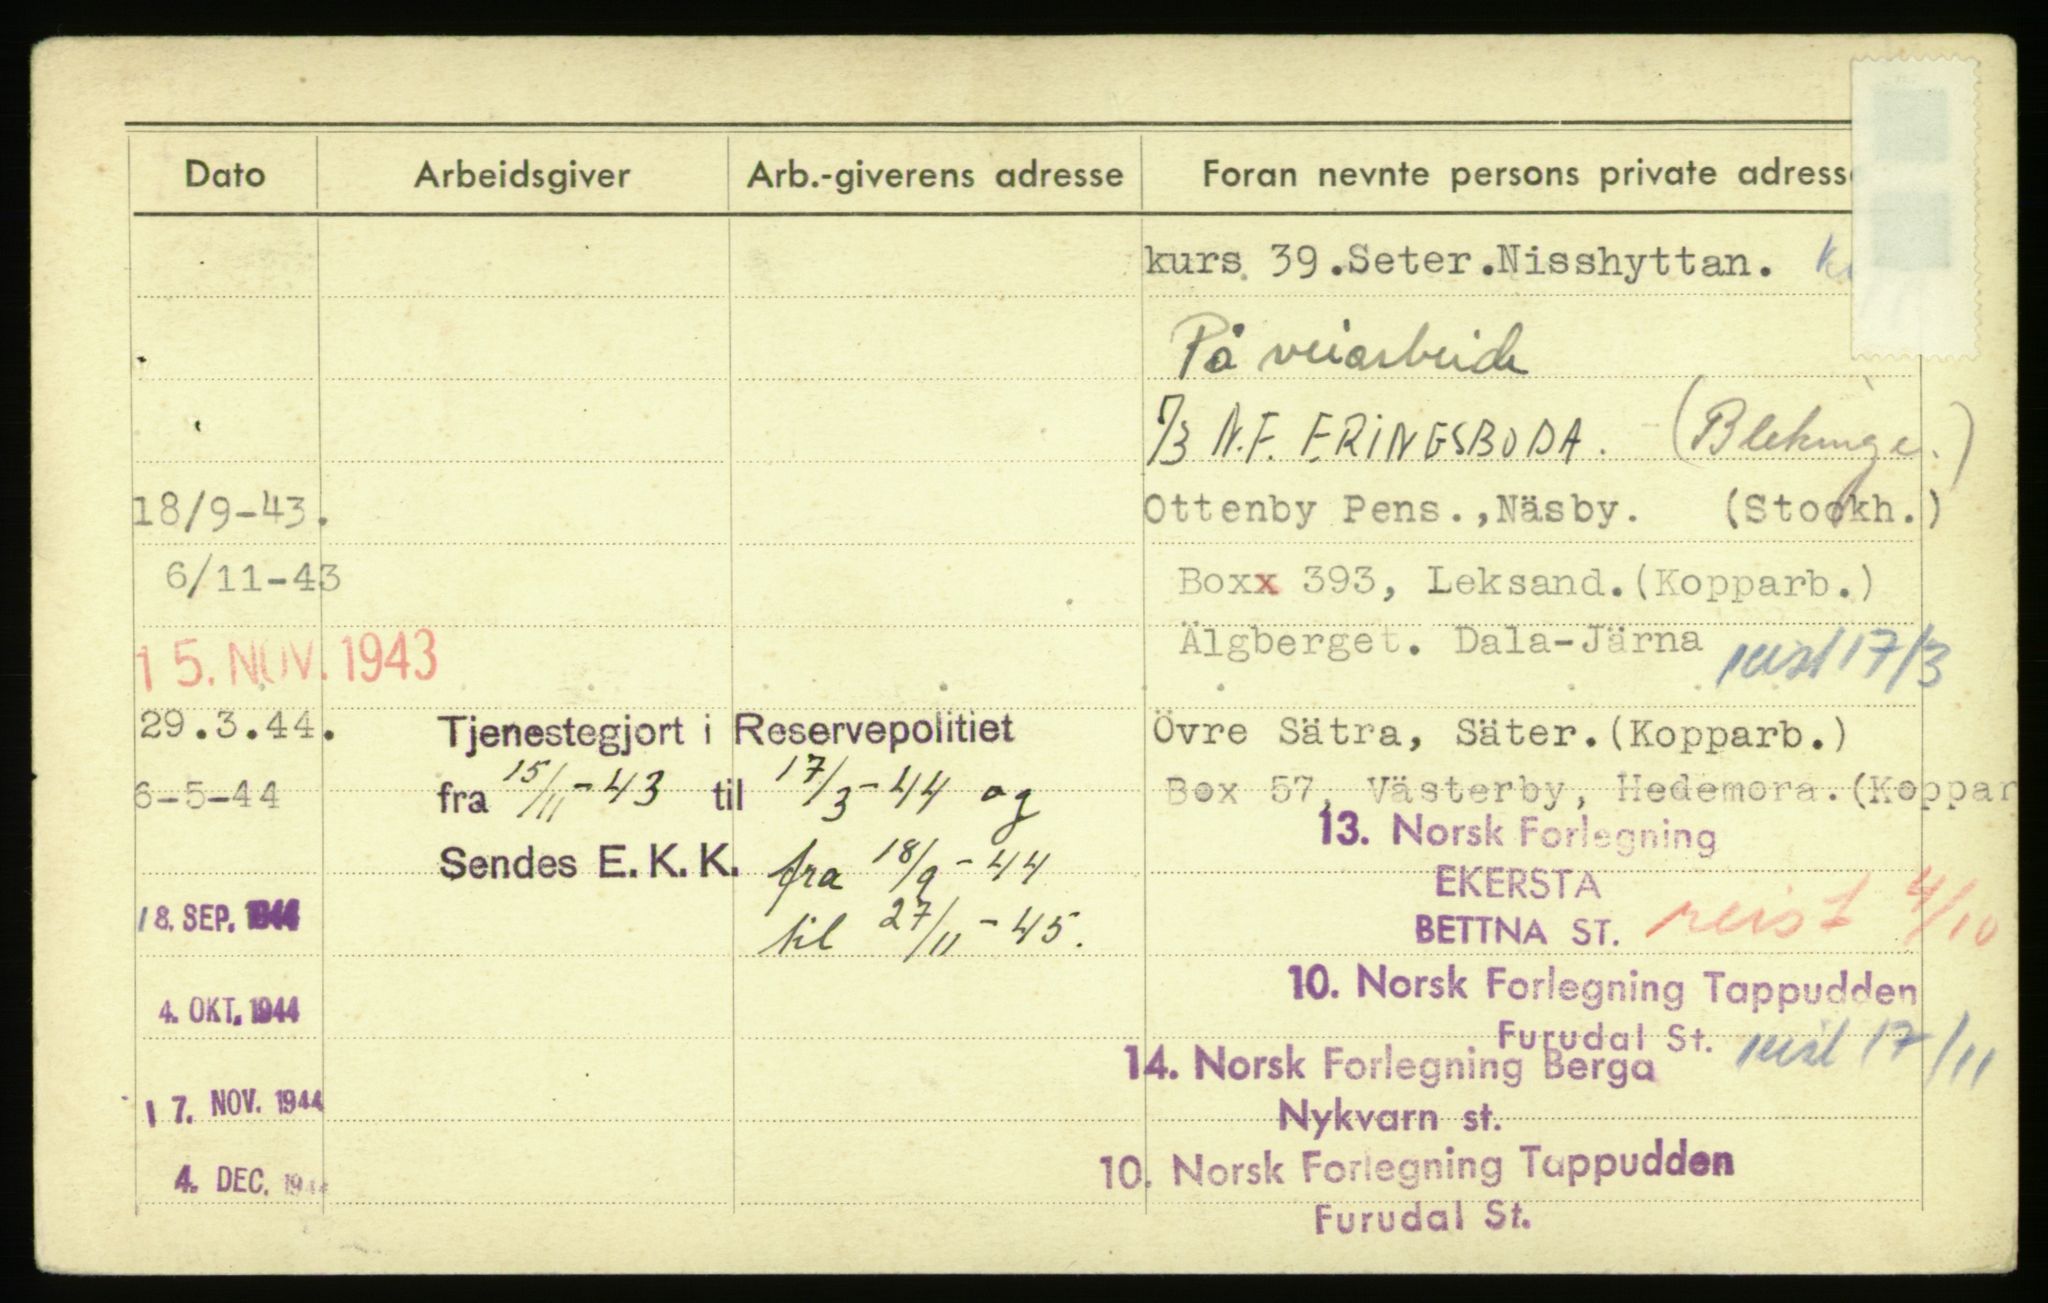 Dato Arbeidsgiver Arb.-giverens adresse Foran nevnte persons private adress
kurs 39.Seter.Nisshyttan.
På veiarbeide
7/3 N.F. ERINGSBODA. (Blekinge.)
18/9-43. Ottenby Pens.,Näsby. (Stockh.)
6/11-43 Boxx 393, Leksand.(Kopparb.)
15. NOV. 1943 Älgberget. Dala-Järna reist 17/3
29.3.44. Tjenestegjort i Reservepolitiet Övre Sätra, Säter.(Kopparb.)
6-5-44 fra 15/11-43 til 17/3-44 og Box 57, Västerby, Hedemora.(Koppar
13. Norsk Forlegning
Sendes E.K.K. fra 18/9-44 EKERSTA
18. SEP. 1944 til 27/11-45. BETTNA ST. reist 4/10
4. OKT. 1944 10. Norsk Forlegning Tappudden
Furudal St. reist 17/11
14. Norsk Forlegning Berga
17. NOV. 1944 Nykvarn st.
4. DEC. 1944 10. Norsk Forlegning Tappudden
Furudal St.